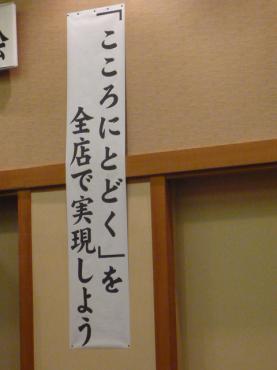 「こころにとどく」を
全店で実現しよう
会